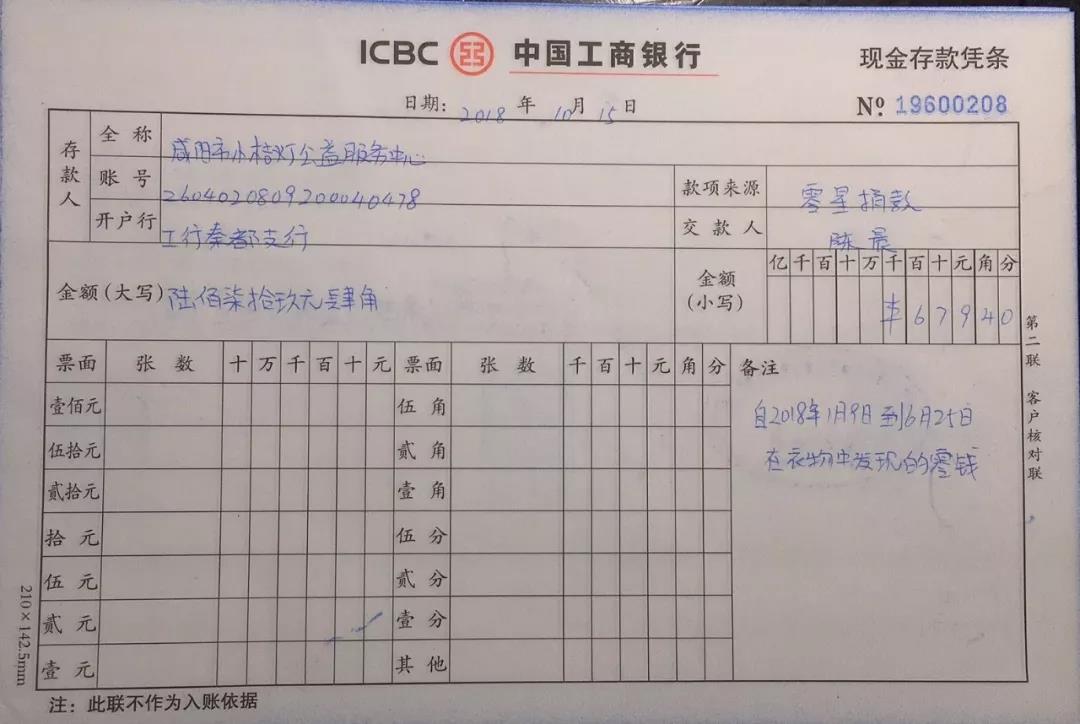 ICBC 中国工商银行 现金存款凭条
日期: 2018 年 10 月 15 日 Nº 19600208
存款人 全称 咸阳市小桔灯公益服务中心
账号 2604020809200040478 款项来源 零星捐款
开户行 工行秦都支行 交款人 陈晨
金额(大写) 陆佰柒拾玖元肆角 金额(小写) 亿千百十万千百十元角分
¥67940
票面 张数 十万千百十元 票面 张数 千百十元角分 备注
壹佰元 伍角 自2018年1月9日到6月25日
伍拾元 贰角 在衣物中发现的零钱
贰拾元 壹角
拾元 伍分
伍元 贰分
贰元 壹分
壹元 其他
注: 此联不作为入账依据
第二联 客户核对联
210×142.5mm